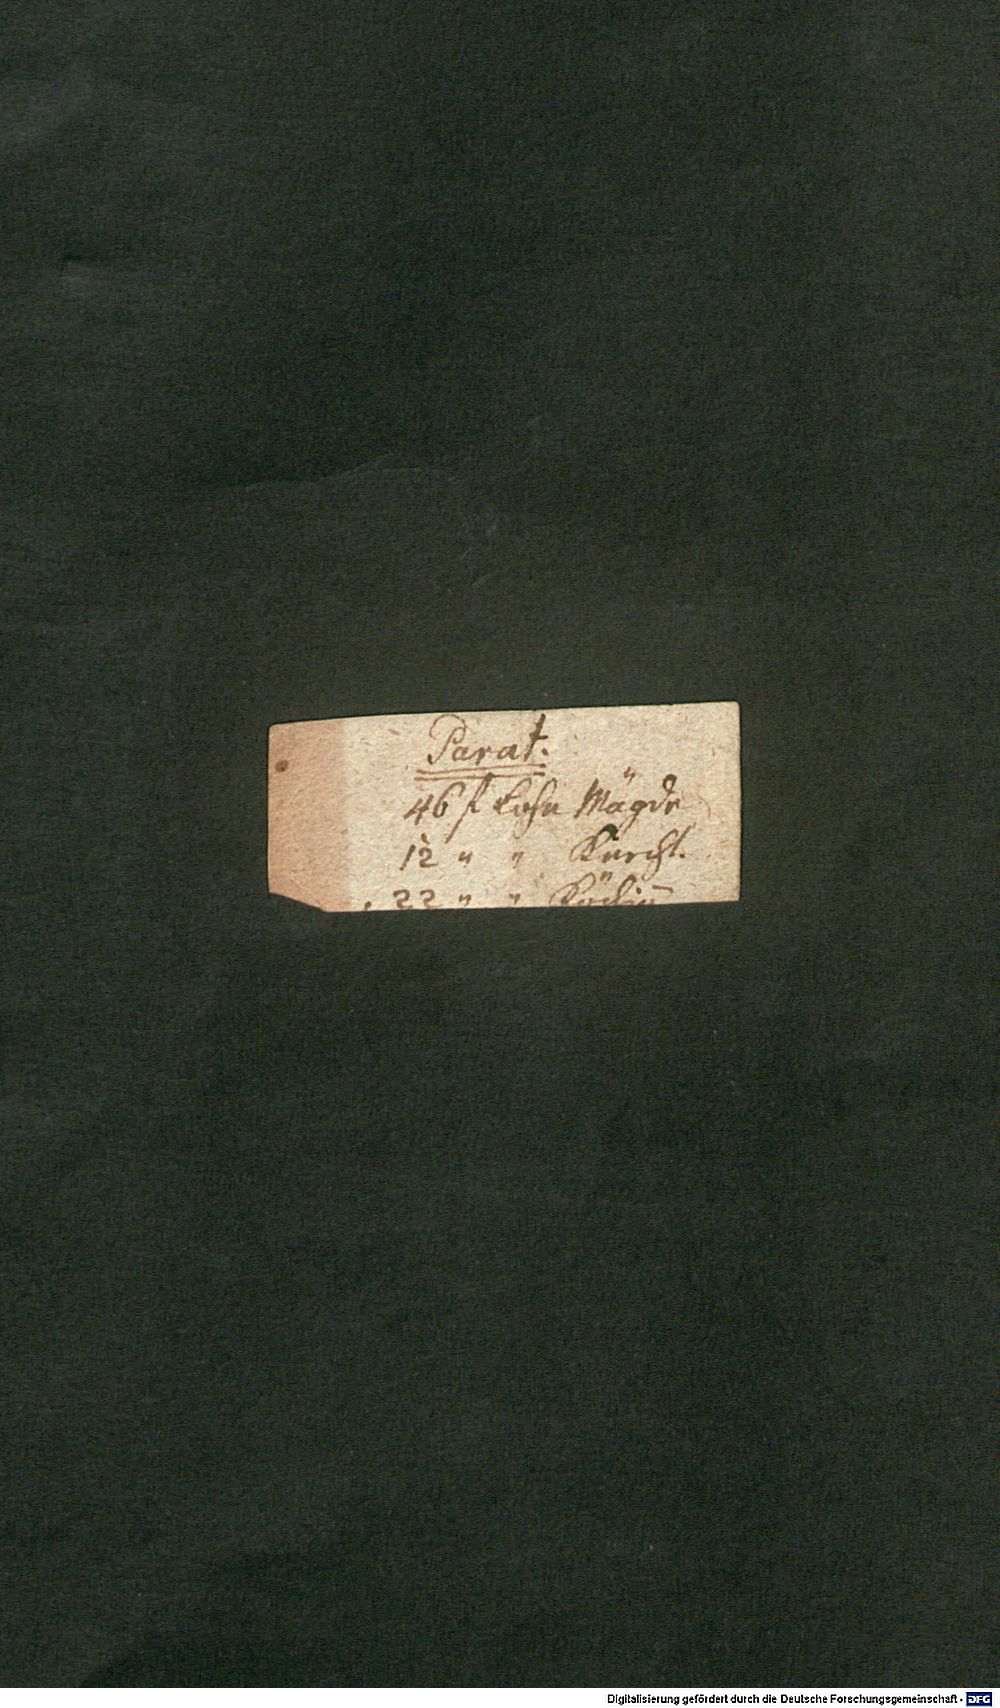 Parat.
46 f Lohn Mägde
12 " " Knecht.
22 " " Köchin
Digitalisierung gefördert durch die Deutsche Forschungsgemeinschaft - DFG